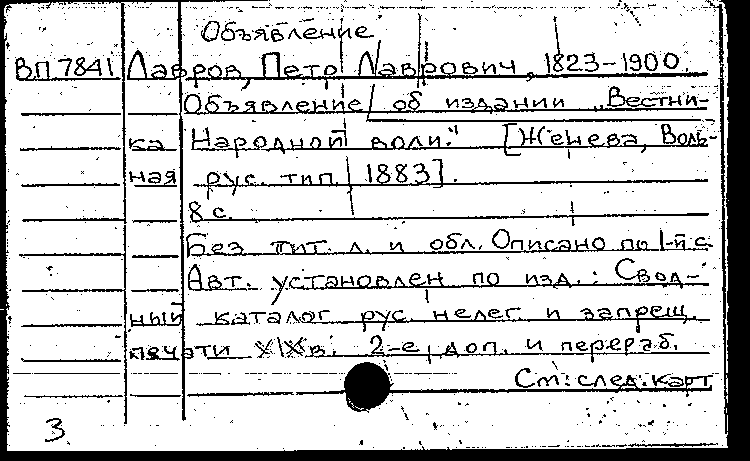 Объявление
ВП7841 Лавров, Петр Лаврович, 1823-1900.
Объявление об издании „Вестни-
ка Народной воли." [Женева, Воль-
ная рус. тип. 1883].
8 с.
Без тит. л. и обл. Описано по 1-й с.
Авт. установлен по изд.: Свод-
ный каталог рус. нелег. и запрещ.
печати XIX в. 2-е, доп. и перераб.
См: след. карт
3